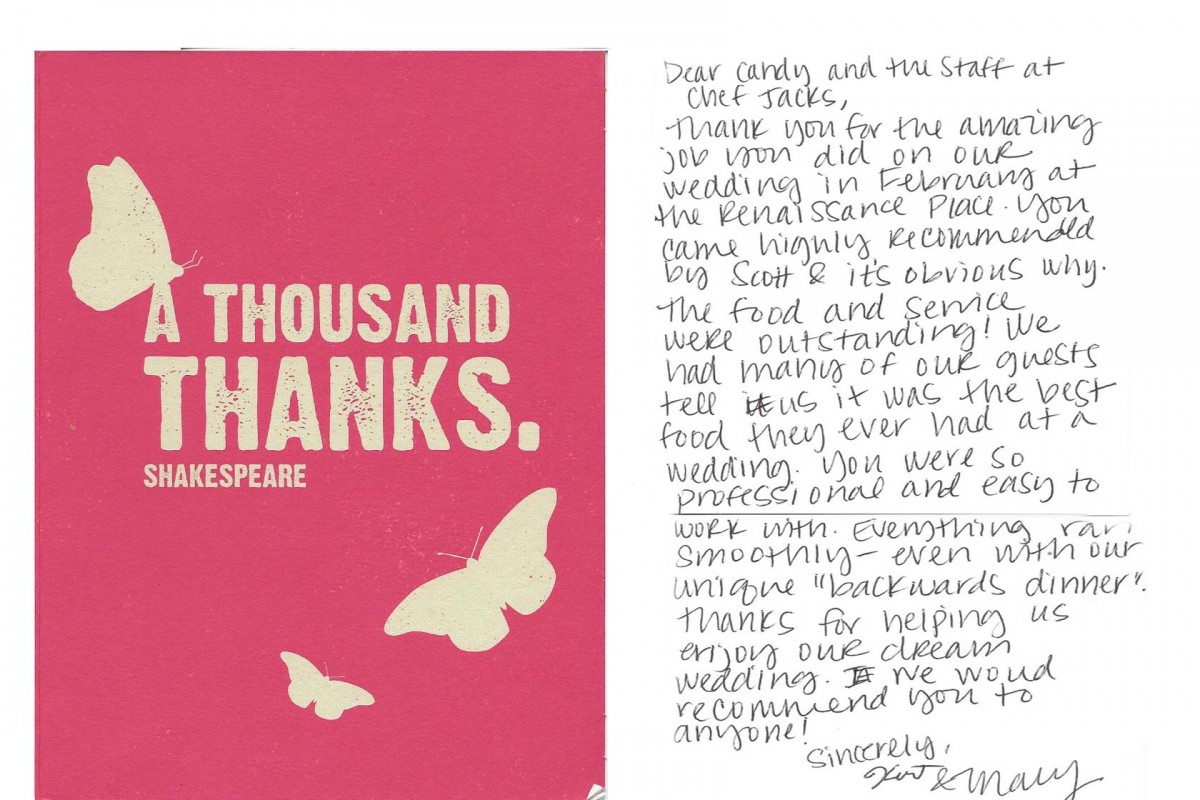 A THOUSAND
THANKS.
SHAKESPEARE
Dear Candy and the Staff at
Chef Jacks,
Thank you for the amazing
job you did on our
wedding in February at
the Renaissance Place. You
came highly recommended
by Scott & it's obvious why.
The food and service
were outstanding! We
had many of our guests
tell us it was the best
food they ever had at a
wedding. You were so
professional and easy to
work with. Everything ran
smoothly- even with our
unique "backwards dinner".
Thanks for helping us
enjoy our dream
wedding. We woud
recommend you to
anyone!
Sincerely,
Kurt & Mary